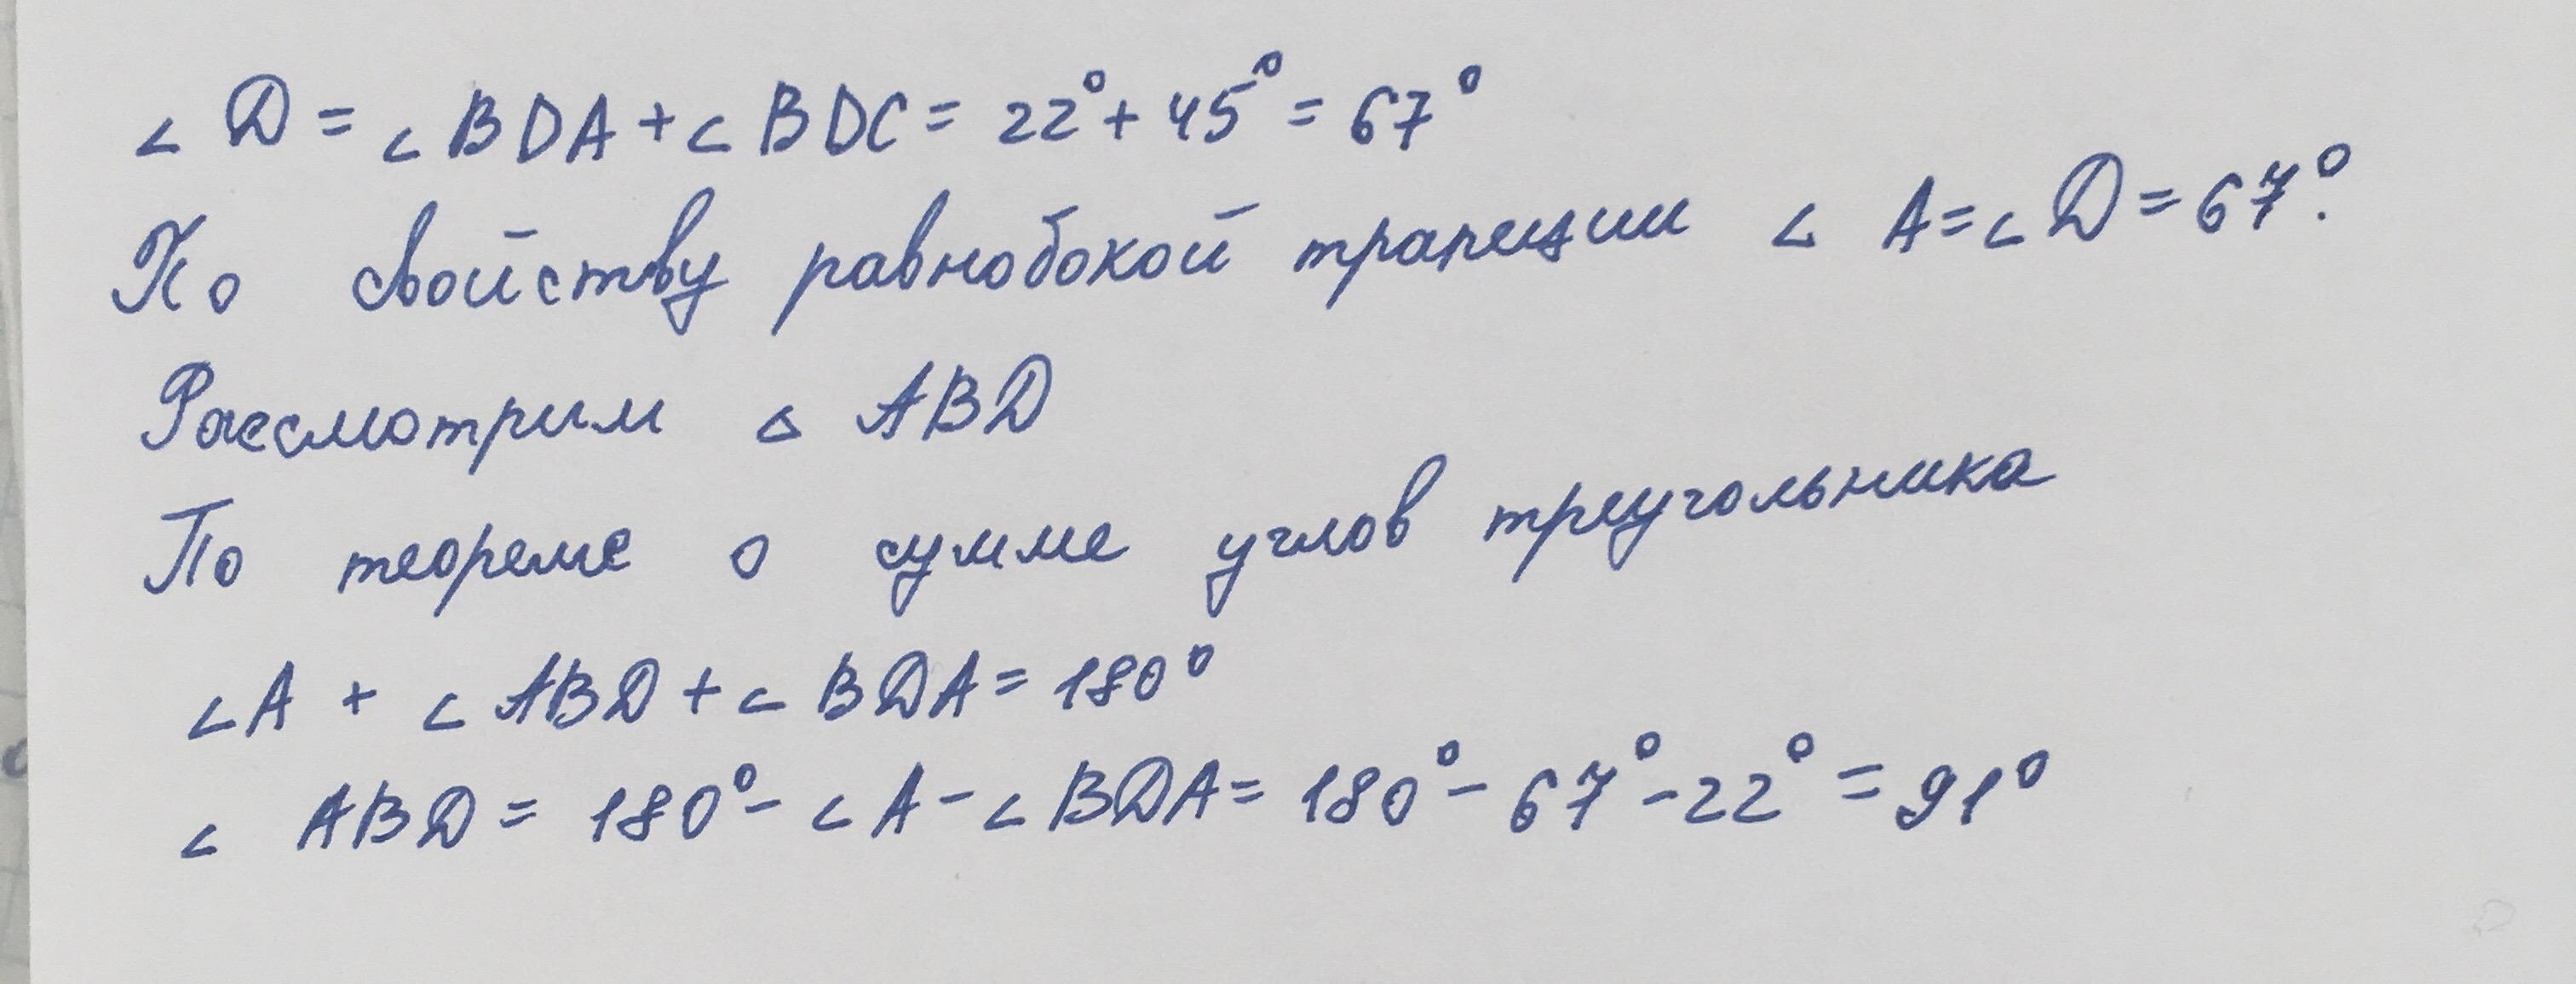 ∠ D = ∠ BDA + ∠ BDC = 22° + 45° = 67°
По свойству равнобокой трапеции ∠ A = ∠ D = 67°.
Рассмотрим △ ABD
По теореме о сумме углов треугольника
∠A + ∠ ABD + ∠ BDA = 180°
∠ ABD = 180° - ∠ A - ∠ BDA = 180° - 67° - 22° = 91°